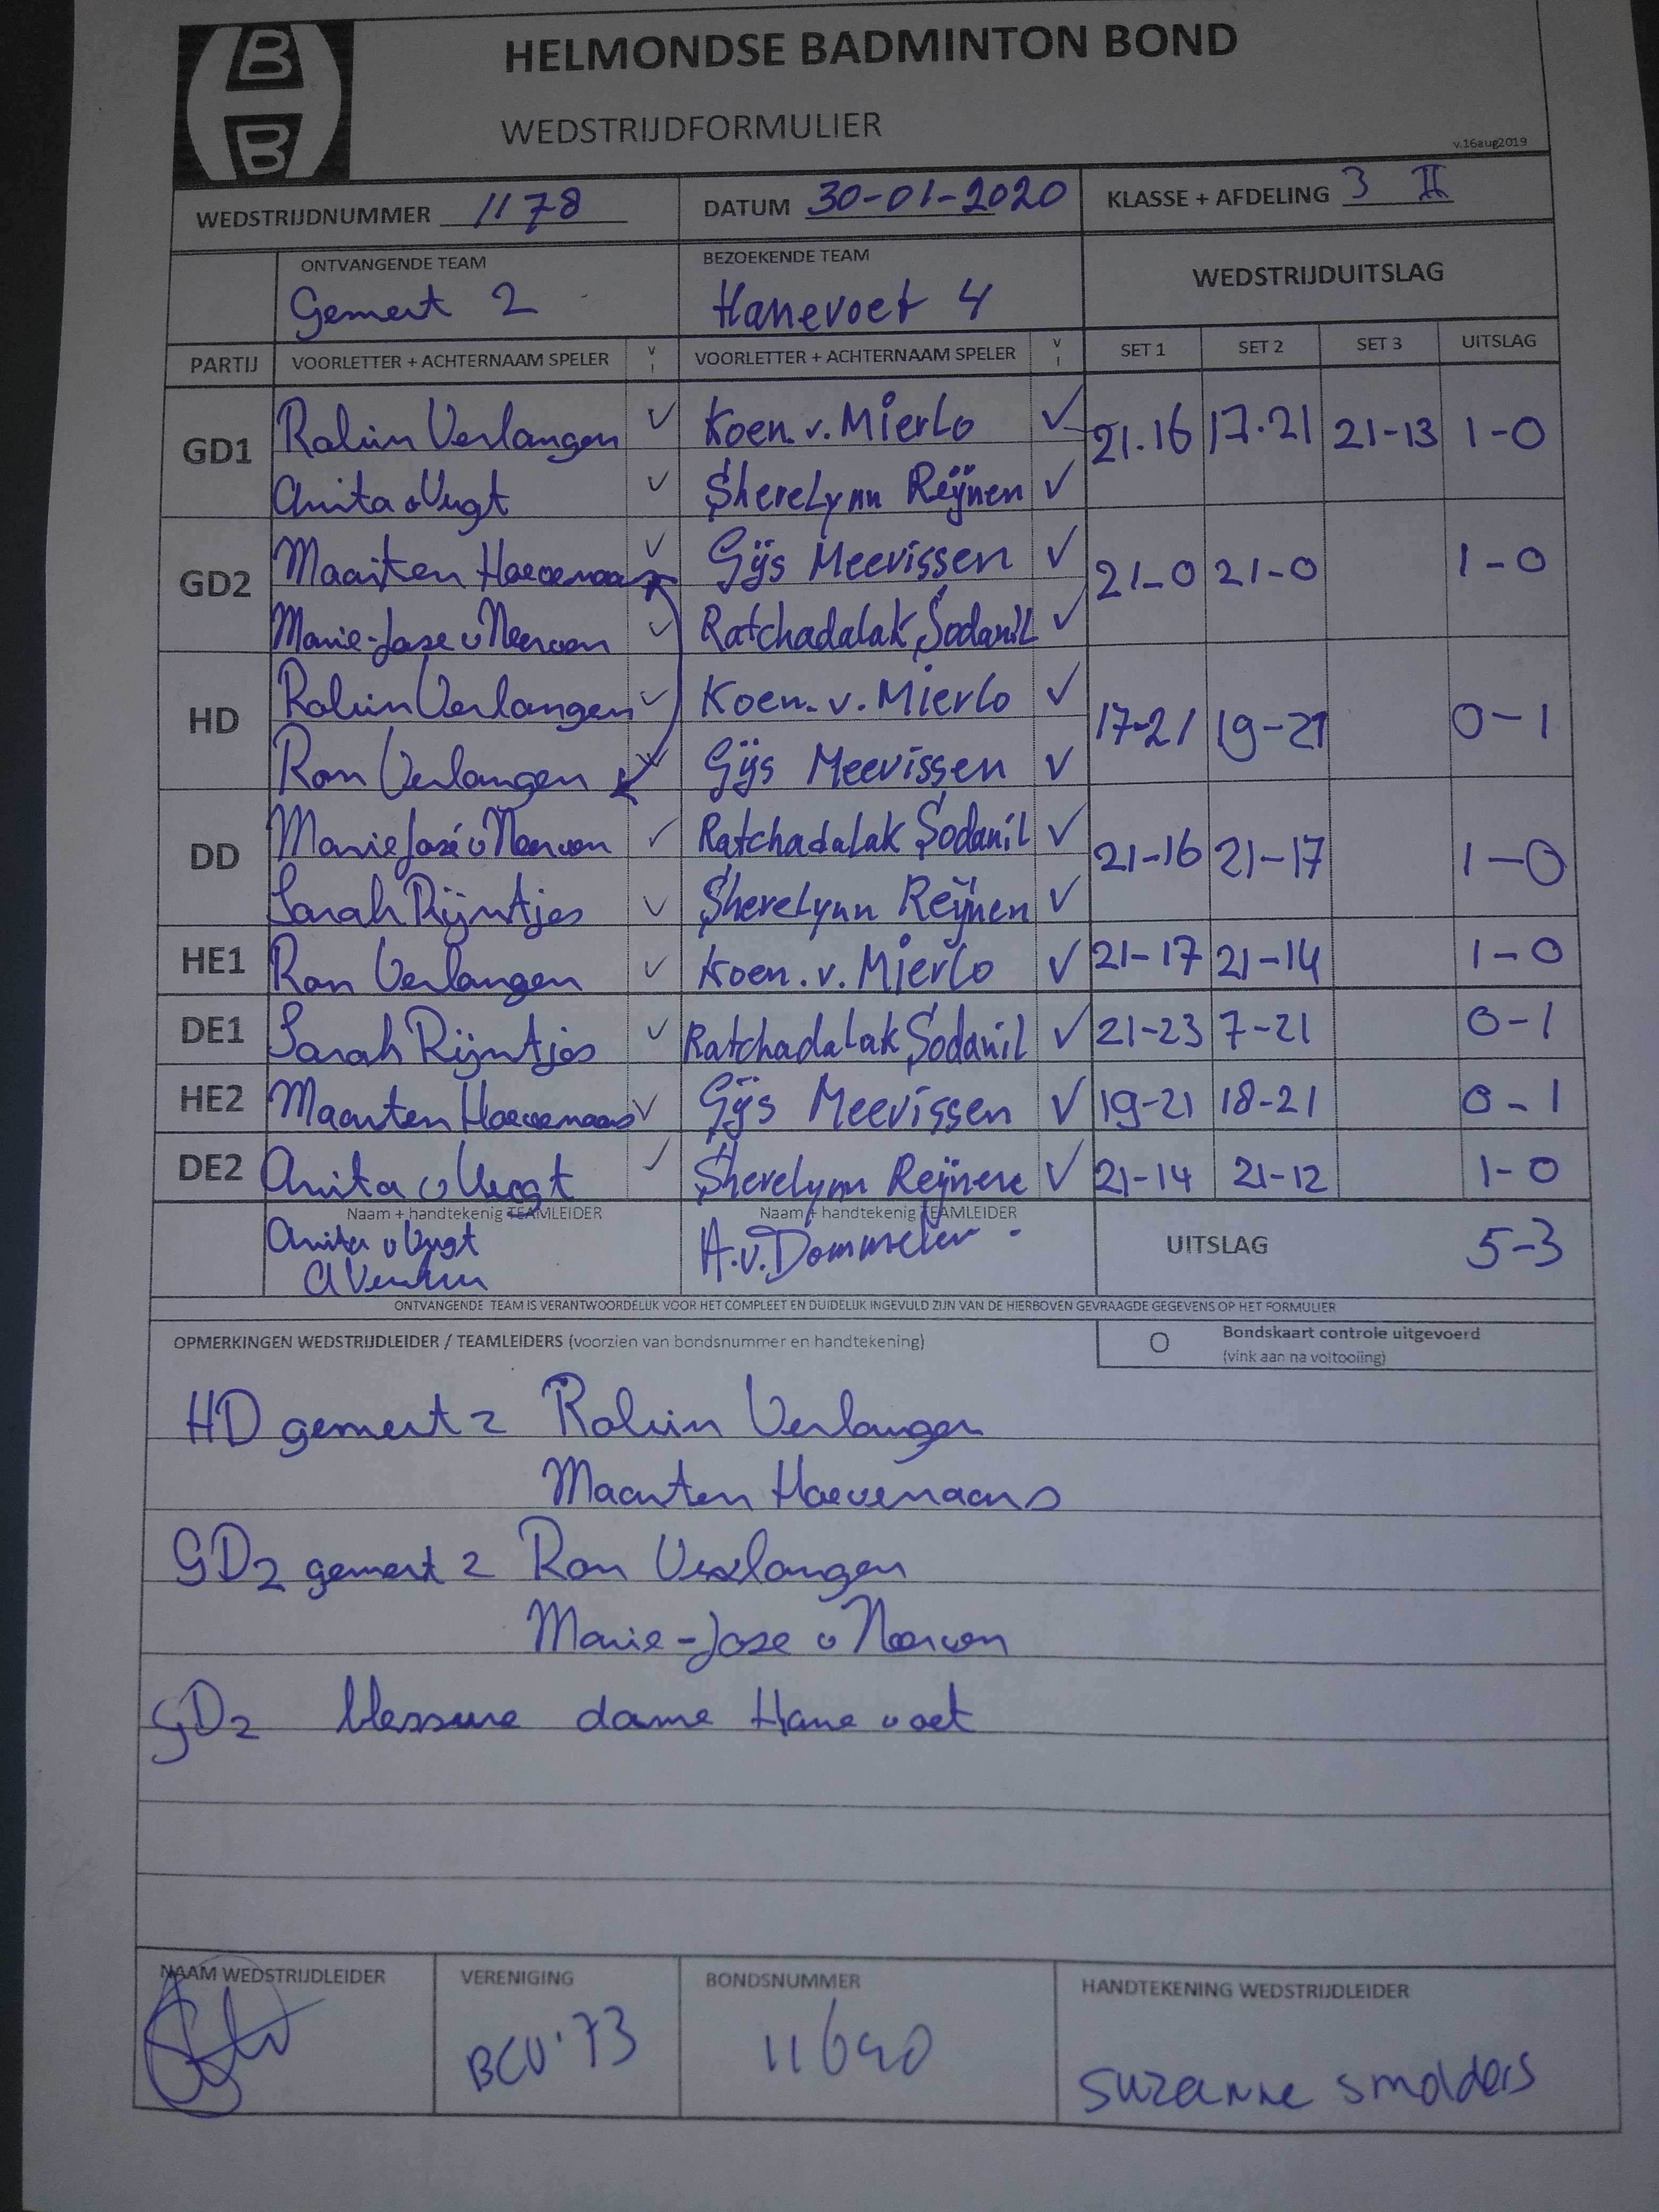 B
B
HELMONDSE BADMINTON BOND
WEDSTRIJDFORMULIER
v.16aug2019
WEDSTRIJDNUMMER 1178 DATUM 30-01-2020 KLASSE + AFDELING 3 II
ONTVANGENDE TEAM BEZOEKENDE TEAM WEDSTRIJDUITSLAG
Gemert 2 Hanevoet 4
PARTIJ VOORLETTER + ACHTERNAAM SPELER V VOORLETTER + ACHTERNAAM SPELER V SET 1 SET 2 SET 3 UITSLAG
GD1 Robin Verlangen ✓ Koen. v. Mierlo ✓ 21.16 17.21 21-13 1-0
Anita v Vugt ✓ Sherelynn Reijnen ✓
GD2 Maarten Hoevenaars ✓ Gijs Meevissen ✓ 21-0 21-0 1-0
Marie-Jose v Neerven ✓ Ratchadalak Sodanil ✓
HD Robin Verlangen ✓ Koen. v. Mierlo ✓ 17-21 19-21 0-1
Ron Verlangen ✓ Gijs Meevissen ✓
DD Marie José v Neerven ✓ Ratchadalak Sodanil ✓ 21-16 21-17 1-0
Sarah Rijntjes ✓ Sherelynn Reijnen ✓
HE1 Ron Verlangen ✓ Koen. v. Mierlo ✓ 21-17 21-14 1-0
DE1 Sarah Rijntjes ✓ Ratchadalak Sodanil ✓ 21-23 7-21 0-1
HE2 Maarten Hoevenaars ✓ Gijs Meevissen ✓ 19-21 18-21 0-1
DE2 Anita v Vugt ✓ Sherelynn Reijnen ✓ 21-14 21-12 1-0
Naam + handtekenig TEAMLEIDER Naam + handtekenig TEAMLEIDER
Anita v Vugt H.v.Dommelen UITSLAG 5-3
ONTVANGENDE TEAM IS VERANTWOORDELIJK VOOR HET COMPLEET EN DUIDELIJK INGEVULD ZIJN VAN DE HIERBOVEN GEVRAAGDE GEGEVENS OP HET FORMULIER
OPMERKINGEN WEDSTRIJDLEIDER / TEAMLEIDERS (voorzien van bondsnummer en handtekening)
O Bondskaart controle uitgevoerd
(vink aan na voltooiing)
HD gemert 2 Robin Verlangen
Maarten Hoevenaars
GD2 gemert 2 Ron Verlangen
Marie-Jose v Neerven
GD2 blessure dame Hanevoet
NAAM WEDSTRIJDLEIDER VERENIGING BONDSNUMMER HANDTEKENING WEDSTRIJDLEIDER
BCV'73 11690 Suzanne Smolders